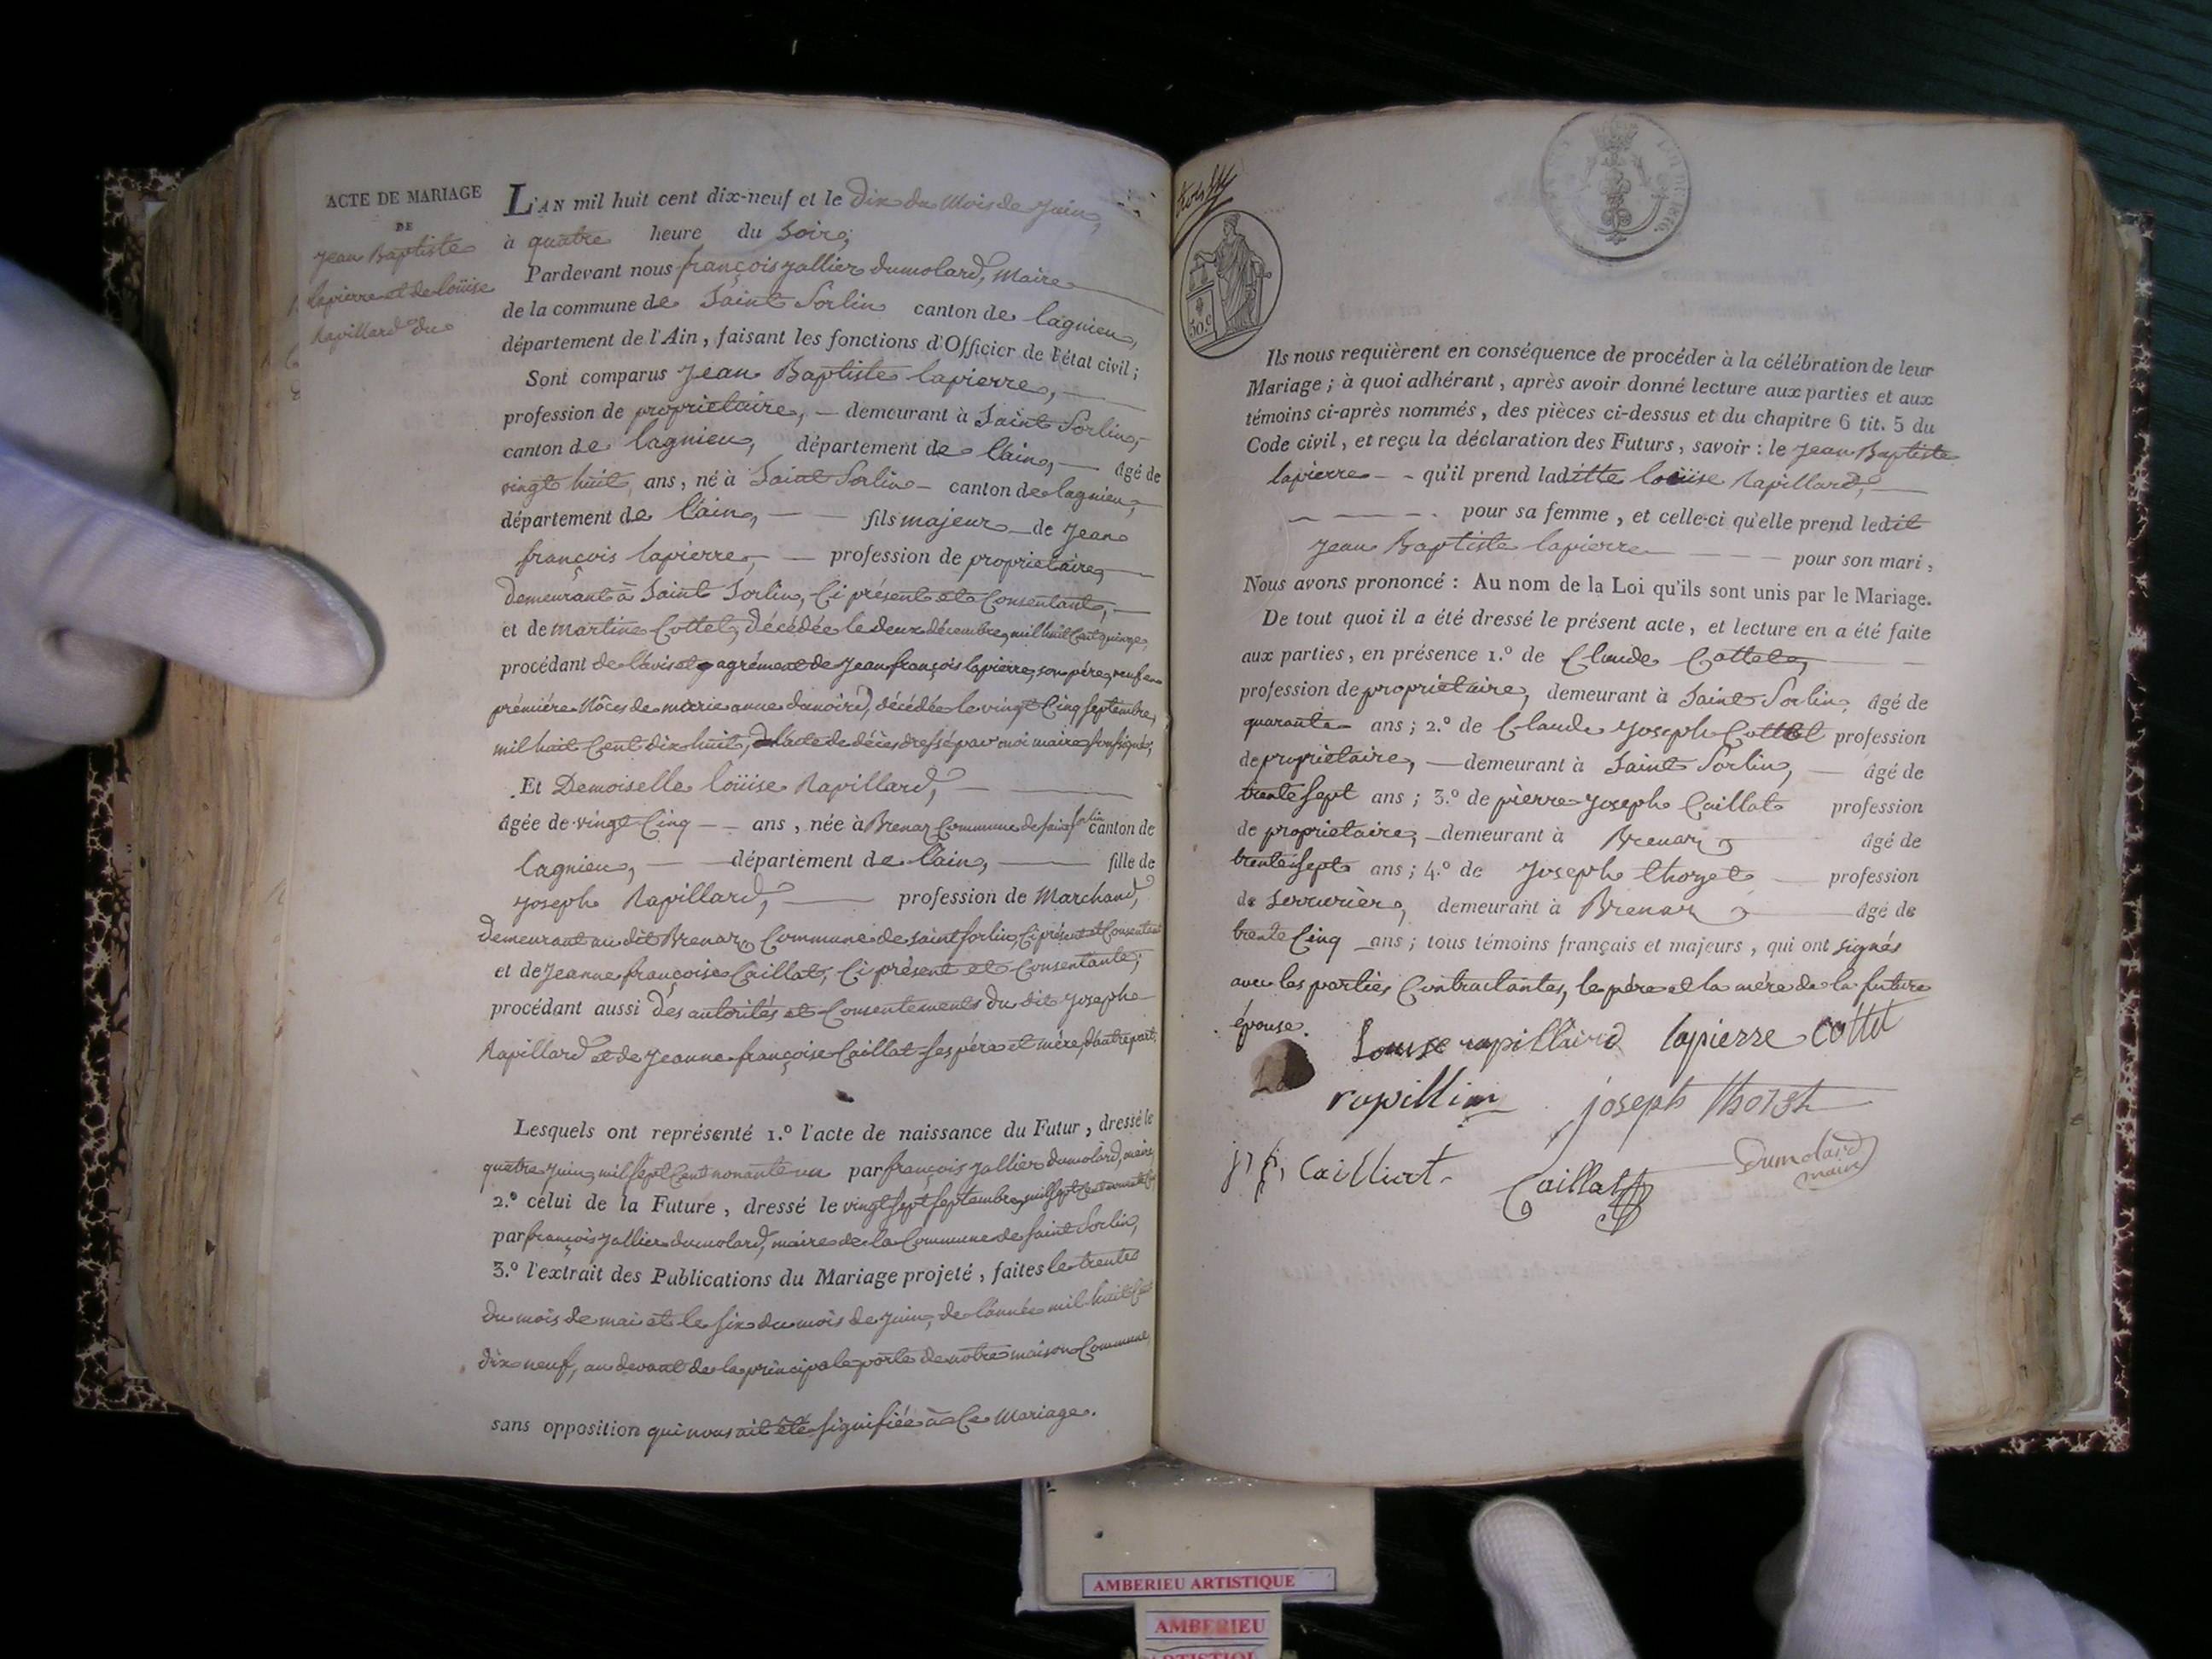 ACTE DE MARIAGE
DE
Jean Baptiste
lapierre et de loüise
Rapillard du
L'AN mil huit cent dix-neuf et le dix du Mois de Juin,
à quatre heure du Soir,
Pardevant nous françois Jallier dumolard, Maire
de la commune de Saint Sorlin canton de lagnieu,
département de l'Ain, faisant les fonctions d'Officier de l'état civil;
Sont comparus Jean Baptiste lapierre,
profession de proprietaire, demeurant à Saint Sorlin,
canton de lagnieu, département de l'ain, âgé de
vingt huit ans, né à Saint Sorlin canton de lagnieu,
département de l'ain, fils majeur de Jean
françois lapierre, profession de proprietaire,
demeurant à Saint Sorlin, Ci présent et Consentant,
et de martine Cottet, décédée le deux décembre, mil huit Cent quinze,
procédant de l'avis et agrément de Jean françois lapierre, son père, veuf en
prémière Nôces de marie anne danoird, décédée le vingt Cinq septembre,
mil huit Cent dix huit, l'acte de décès dressé par moi maire soussigné,
Et Demoiselle loüise Rapillard,
âgée de vingt Cinq ans, née à Brenaz Commune de saint Sorlin canton de
lagnieu, département de l'ain, fille de
Joseph Rapillard, profession de Marchand,
demeurant au dit Brenaz, Commune de saint Sorlin, Ci présent et Consentent
et de Jeanne françoise Caillat, Ci présent et Consentante,
procédant aussi des autorités et Consentements du dit Joseph
Rapillard et de Jeanne françoise Caillat ses père et mère, d'autre part.
Lesquels ont représenté 1.º l'acte de naissance du Futur, dressé le
quatre Juin, mil sept Cent nonante un par françois Jallier dumolard, maire,
2.º celui de la Future, dressé le vingt sept septembre, mil sept Cent
par françois Jallier dumolard, maire de la Commune de saint Sorlin,
3.º l'extrait des Publications du Mariage projeté, faites le trente
du mois de mai et le six du mois de juin, de l'année mil huit Cent
dix neuf, au devant de la principale porte de notre maison Commune,
sans opposition qui nous ait été signifiée à Ce Mariage.
50.c
Ils nous requièrent en conséquence de procéder à la célébration de leur
Mariage; à quoi adhérant, après avoir donné lecture aux parties et aux
témoins ci-après nommés, des pièces ci-dessus et du chapitre 6 tit. 5 du
Code civil, et reçu la déclaration des Futurs, savoir: le Jean Baptiste
lapierre qu'il prend laditte loüise Rapillard,
pour sa femme, et celle-ci qu'elle prend ledit
Jean Baptiste lapierre pour son mari,
Nous avons prononcé: Au nom de la Loi qu'ils sont unis par le Mariage.
De tout quoi il a été dressé le présent acte, et lecture en a été faite
aux parties, en présence 1.º de Claude Cottet,
profession de propriétaire, demeurant à Saint Sorlin, âgé de
quarante ans; 2.º de Claude Joseph Cottet profession
de propriétaire, demeurant à Saint Sorlin, âgé de
trente sept ans; 3.º de pierre Joseph Caillat profession
de proprietaire, demeurant à Brenaz, âgé de
trente sept ans; 4.º de Joseph thozet profession
de serrurier, demeurant à Brenaz, âgé de
trente Cinq ans; tous témoins français et majeurs, qui ont signés
avec les parties Contractantes, le père et la mère de la future
épouse.
Louise rapillaird lapierre Cottet
joseph thozet
Caillat
Dumolard
maire
AMBERIEU ARTISTIQUE
AMBERIEU